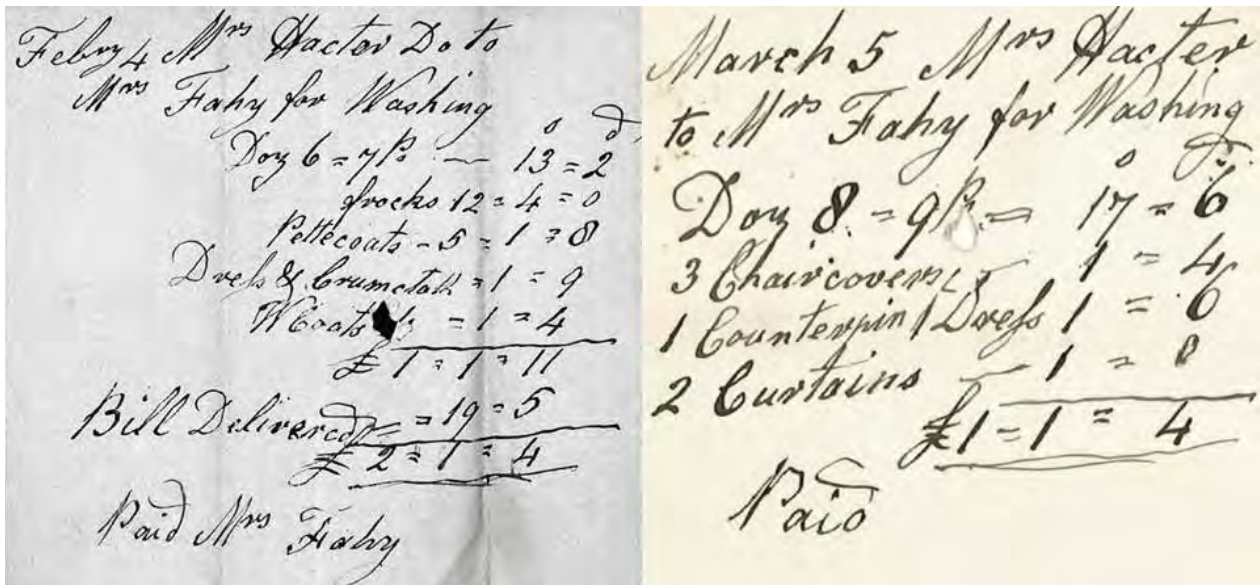 Febry 4 Mrs Hacter Do to
Mrs Fahy for Washing
s d
Doz 6 = 7 Ps — 13 = 2
frocks 12 = 4 = 0
Pettecoats - 5 = 1 = 8
Dress & Crumcloth = 1 = 9
W Coats = 1 = 4
£ 1 = 1 = 11
Bill Delivered = 19 = 5
£ 2 = 1 = 4
Paid Mrs Fahy
March 5 Mrs Hacter
to Mrs Fahy for Washing
s d
Doz 8 = 9 Ps = 17 = 6
3 Chaircovers 1 = 4
1 Counterpin 1 Dress 1 = 6
2 Curtains — 1 = 0
£1 = 1 = 4
Paid